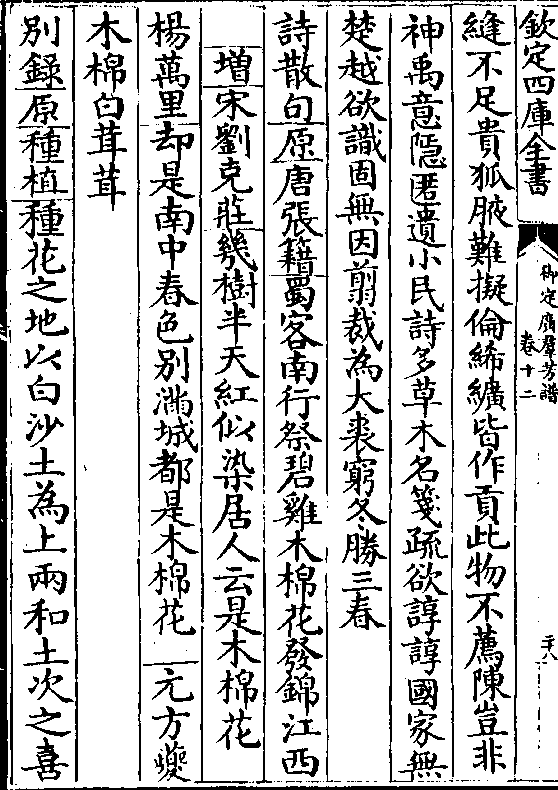 欽定四庫全書
御定廣羣芳譜
卷十二
二十八
縫不足貴狐腋難擬倫絺纊皆作貢此物不薦陳豈非
神禹意隱匿遺小民詩多草木名箋疏欲諄諄國家無
楚越欲識固無因翦裁為大裘窮冬勝三春
詩散句原唐張籍蜀客南行祭碧雞木棉花發錦江西
增宋劉克莊幾樹半天紅似染居人云是木棉花
楊萬里却是南中春色別滿城都是木棉花 元方夔
木棉白茸茸
別錄原種植種花之地以白沙土為上兩和土次之喜